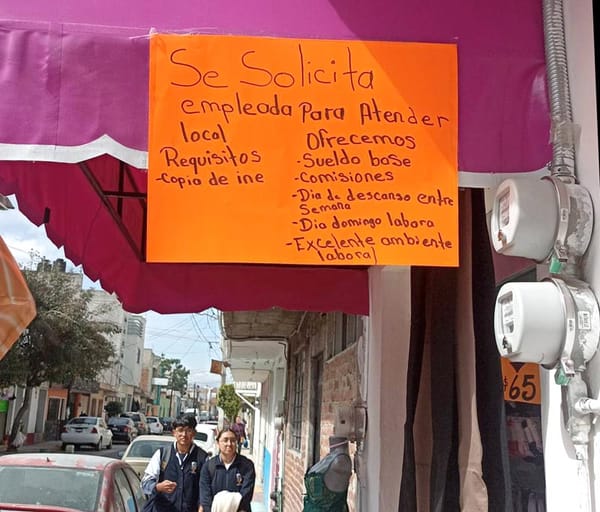 Se Solicita
empleada Para Atender
local
Requisitos
-Copia de ine
Ofrecemos
-Sueldo base
-Comisiones
-Dia de descanso entre
Semana
-Dia domingo labora
-Excelente ambiente
laboral
$65